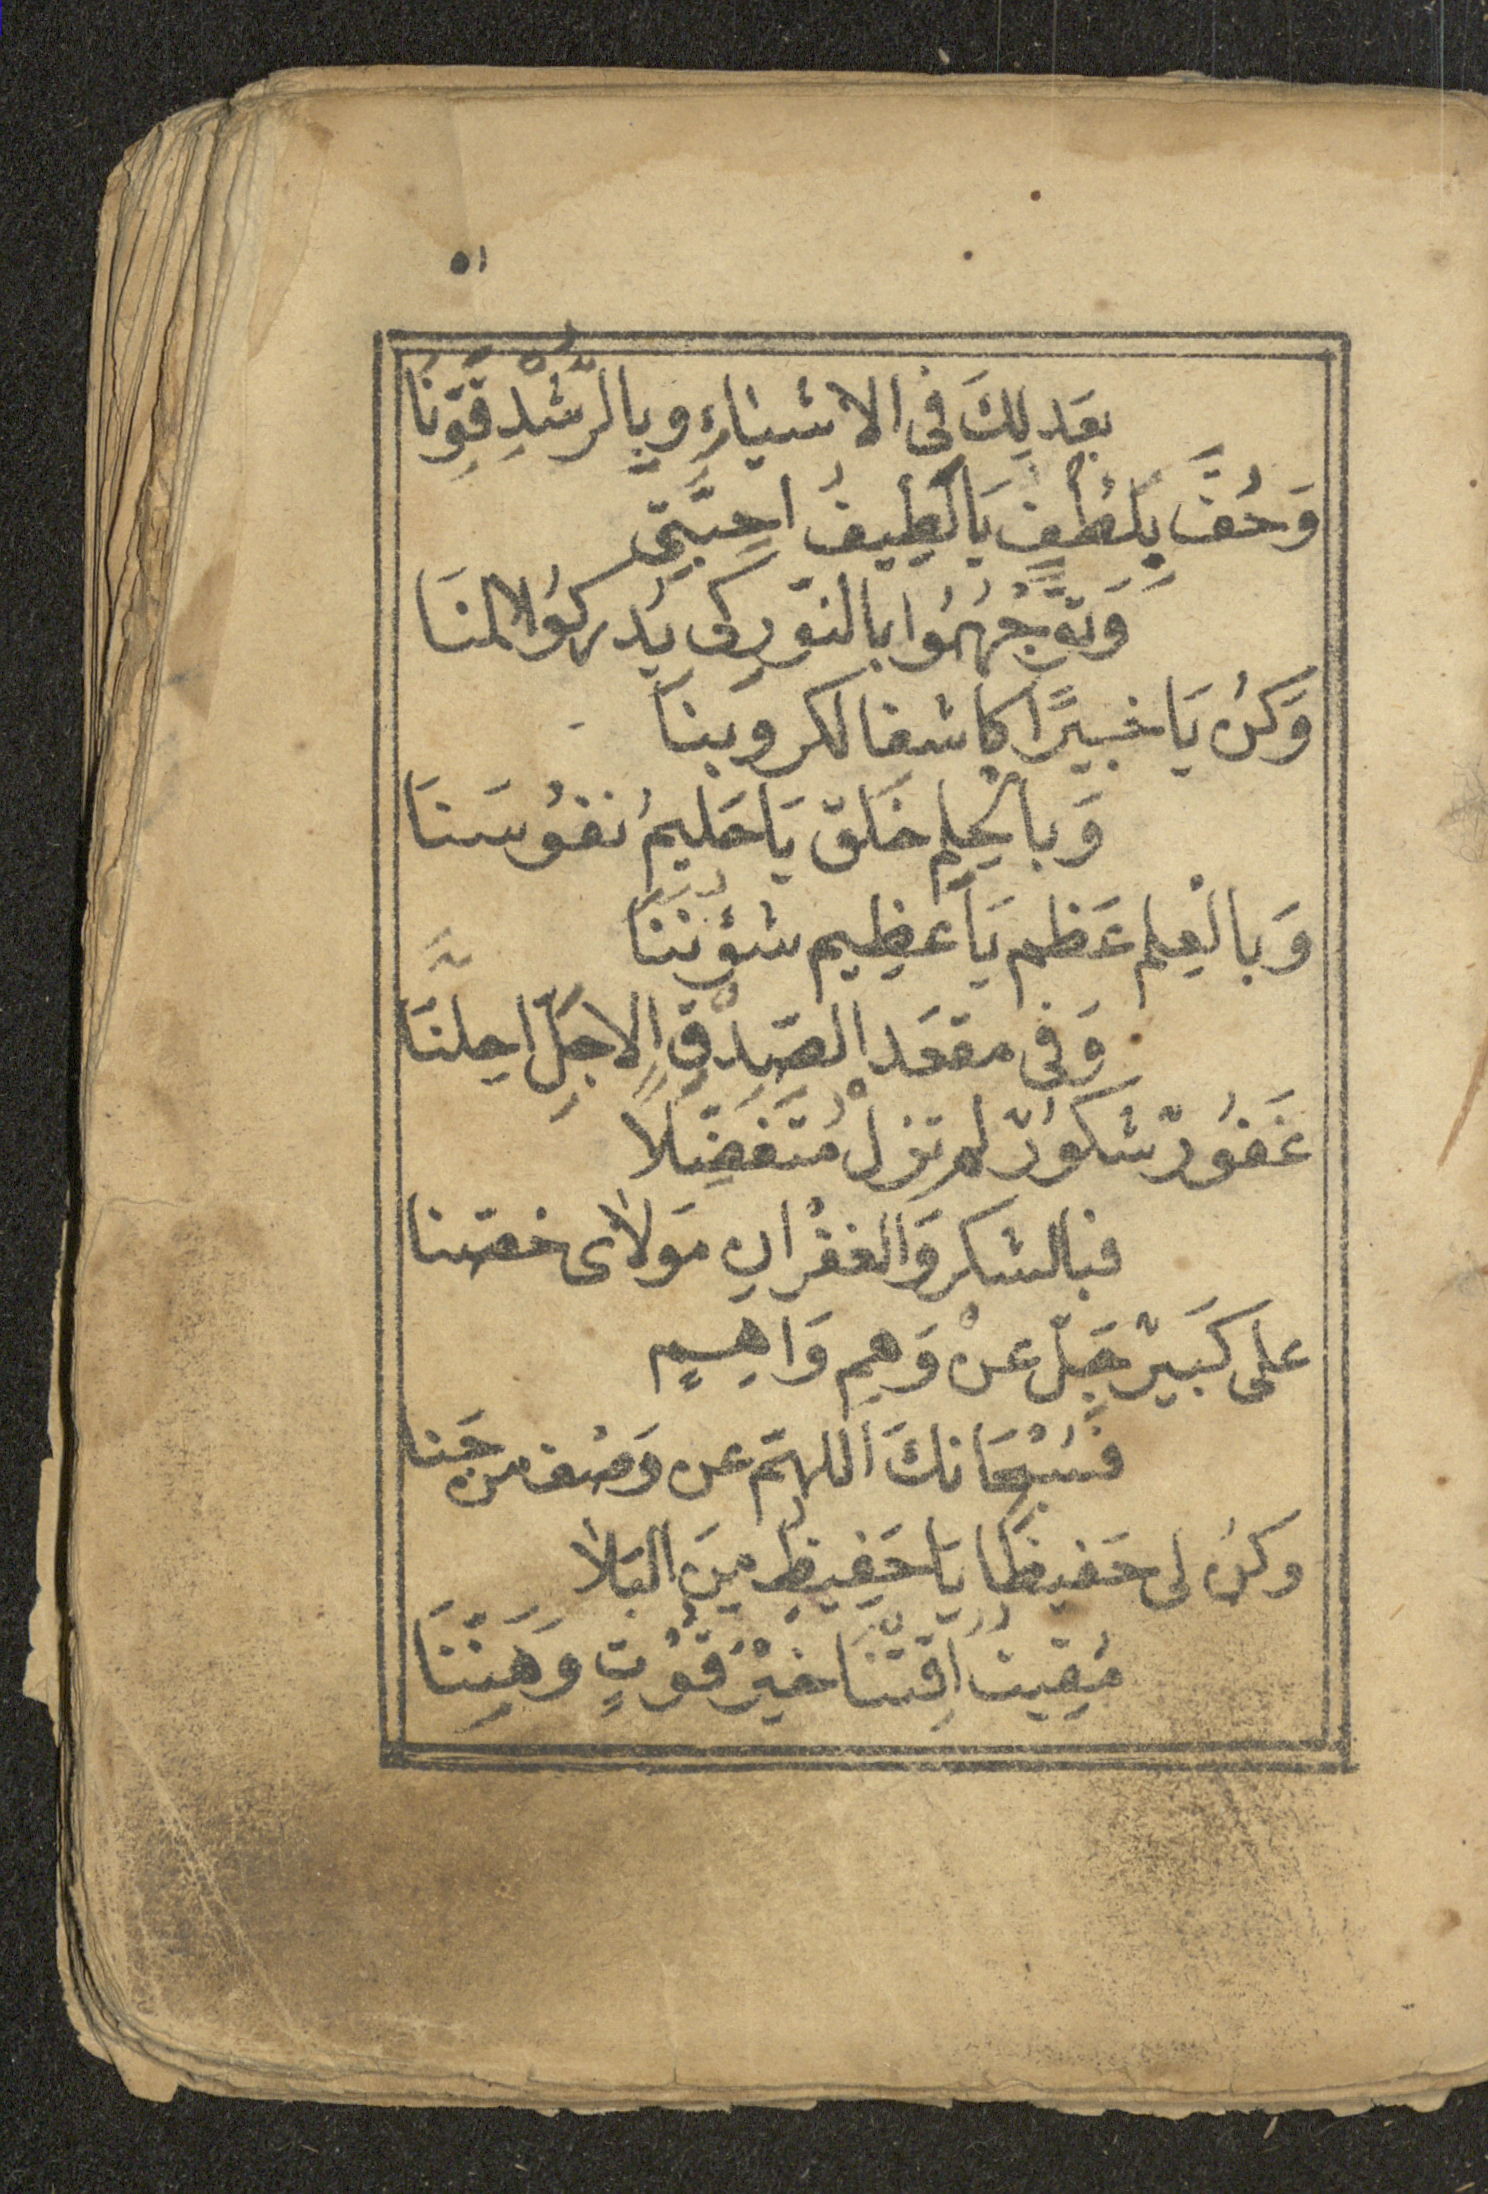 ٥١
بعَدلِكَ فی الاشیَاءِ وبِالرُّشْدِ قَوِّنَا
وَحُفَّ بِلُطْفٍ یَالَطِیفُ احِبَّتِی
وَتَوِّجْهُمُوا بالنّورِ کَی یُدرکُوا المنَا
وَکُنْ یَا خبیرًا کاشفا لکروبنَا
وَبالْحِلمِ خَلق یَا حَلیمُ نفوُسَنَا
وَبالْعِلم عَظم یَا عَظِیم شؤُنَنَا
وَفی مقعَد الصّدْقِ الاجَلِّ احِلنَّا
غَفوُرٌ شکوُرٌ لم تزلْ مُتَفَضِّلًا
فبالشکر وَالغفْرانِ مَولاٰی خصّنا
علی کَبَیرٌ جَلّ عنْ وَهمِ وَاهِمٍ
فَسُبْحَانكَ اللهمّ عن وَصْف من جَنا
وکنْ لی حَفیظًا یَا حَفِیظُ مِنَ البَلاٰ
مُقِیتُ اَقِتْنَا خیْرَ قُوْتٍ وَهَنِّنَا